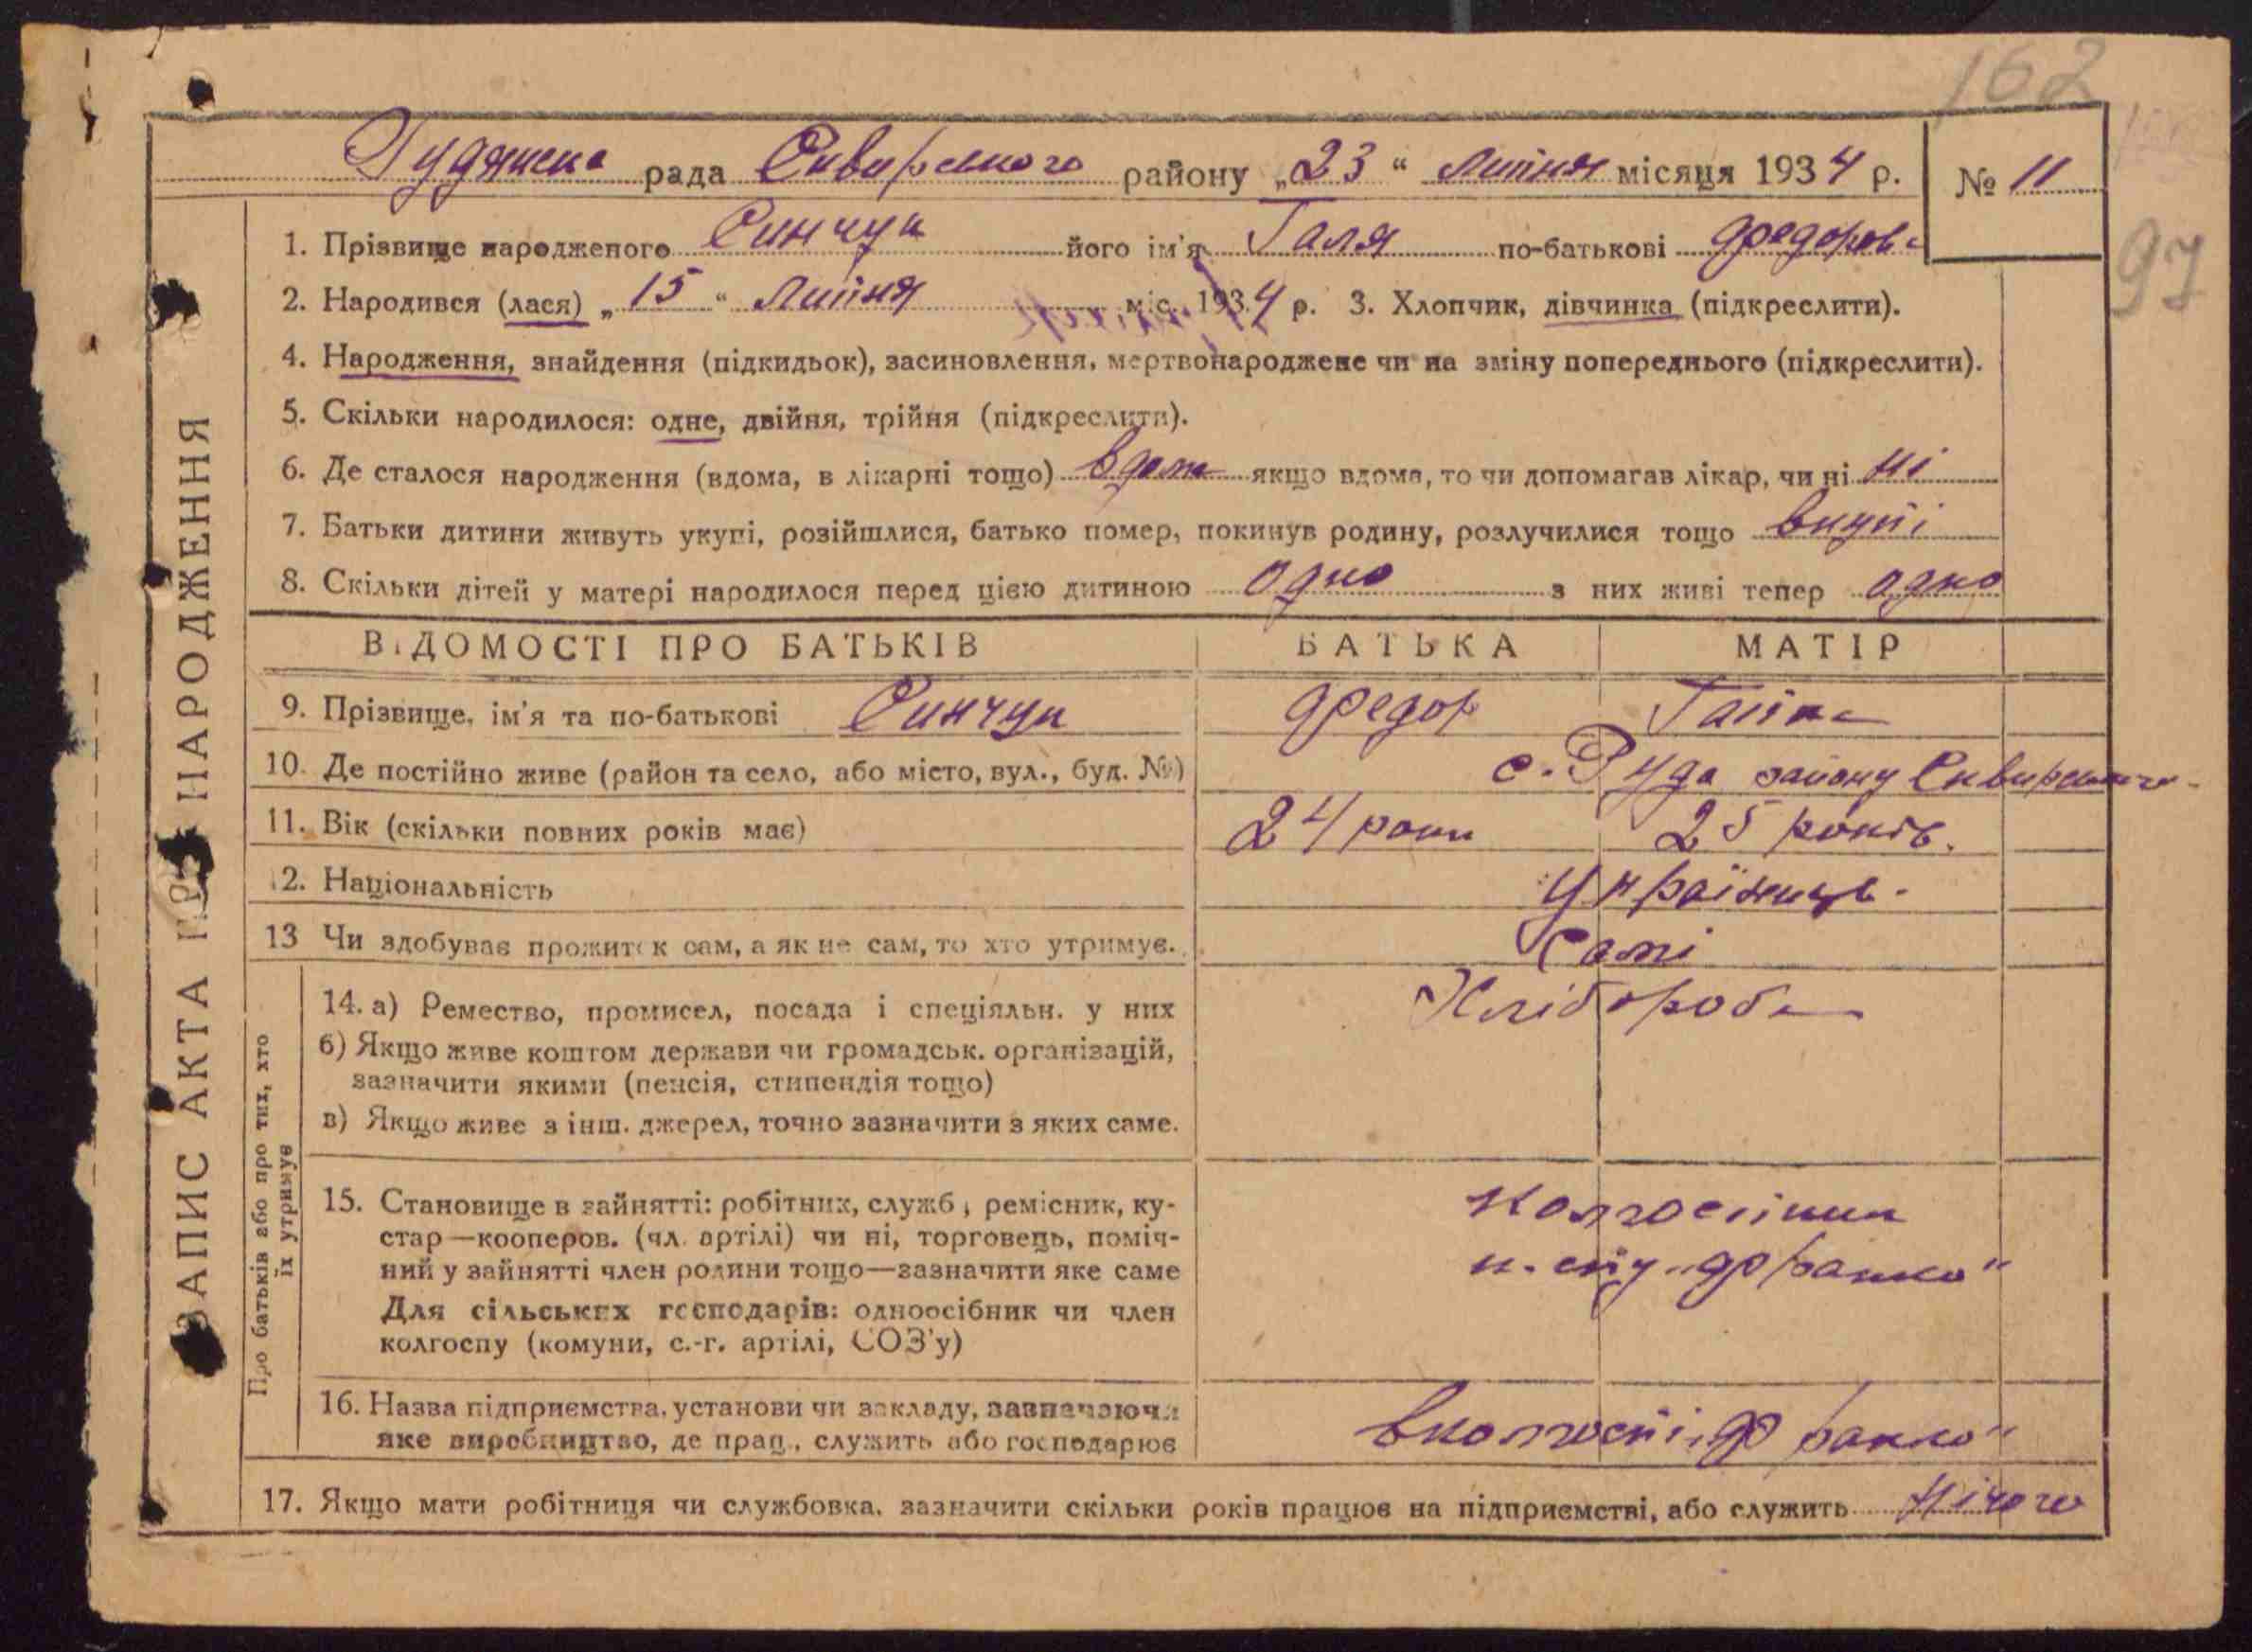 162
97
Рудянська рада Сквирського району „23“ Липня місяця 1934 р. № 11
1. Прізвище народженого Синчук його ім'я Галя по-батькові Федоров
2. Народився (лася) „15“ Липня міс. 1934 р. 3. Хлопчик, дівчинка (підкреслити).
4. Народження, знайдення (підкидьок), засиновлення, мертвонароджене чи на зміну попереднього (підкреслити).
5. Скільки народилося: одне, двійня, трійня (підкреслити).
6. Де сталося народження (вдома, в лікарні тощо) вдома якщо вдома, то чи допомагав лікар, чи ні ні
7. Батьки дитини живуть укупі, розійшлися, батько помер, покинув родину, розлучилися тощо вкупі
8. Скільки дітей у матері народилося перед цією дитиною одно з них живі тепер одно
ВІДОМОСТІ ПРО БАТЬКІВ БАТЬКА МАТІР
9. Прізвище, ім'я та по-батькові Синчук Федор Ганна
10. Де постійно живе (район та село, або місто, вул., буд. №) с. Руда району Сквирського
11. Вік (скільки повних років має) 24 роки 25 років.
12. Національність Українць.
13 Чи здобуває прожиток сам, а як не сам, то хто утримує. Самі
14. а) Ремество, промисел, посада і спеціяльн. у них Хлібороб
б) Якщо живе коштом держави чи громадськ. організацій,
зазначити якими (пенсія, стипендія тощо)
в) Якщо живе з інш. джерел, точно зазначити з яких саме.
15. Становище в зайнятті: робітник, служб., ремісник, ку-
стар—кооперов. (чл. артілі) чи ні, торговець, поміч-
ний у зайнятті член родини тощо—зазначити яке саме
Для сільських господарів: одноосібник чи член
колгоспу (комуни, с.-г. артілі, СОЗ'у)
Колгоспник
к-спу „Франко“
16. Назва підприємства, установи чи закладу, зазначаючи
яке виробництво, де прац., служить або господарює
в колгоспі „Франко“
17. Якщо мати робітниця чи службовка, зазначити скільки років працює на підприємстві, або служить нічого
ЗАПИС АКТА ПРО НАРОДЖЕННЯ
Про батьків або про тих, хто
їх утримує